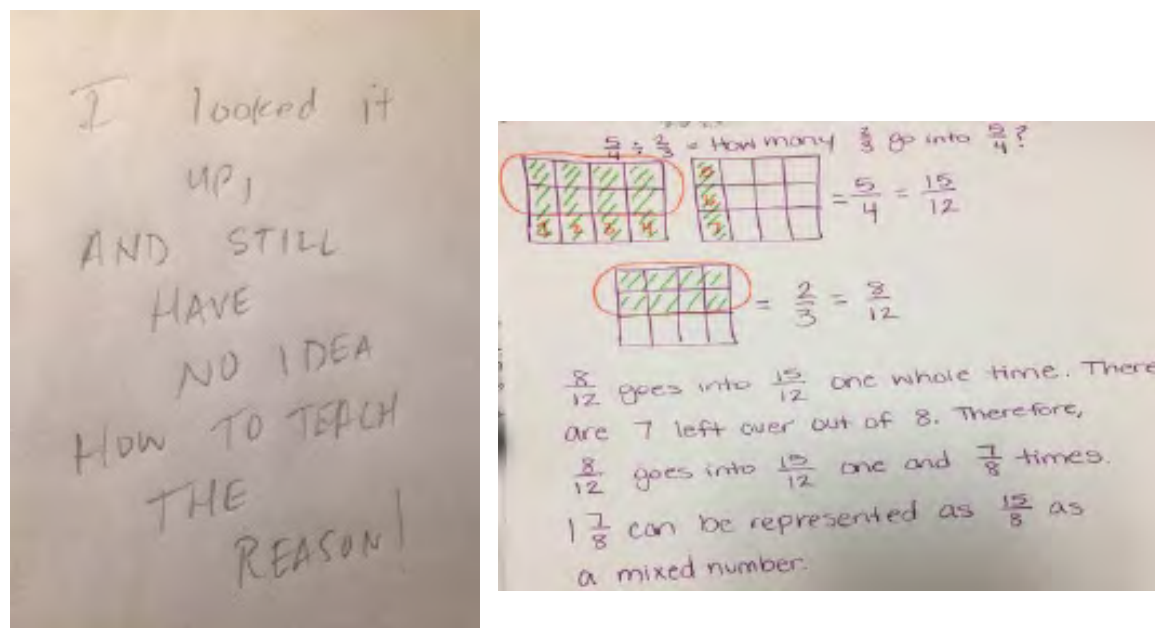 I looked it
up,
AND STILL
HAVE
NO IDEA
HOW TO TEACH
THE
REASON!
5/4 ÷ 2/3 = How many 2/3 go into 5/4?
1 2 3 4
5
6
7
= 5/4 = 15/12
= 2/3 = 8/12
8/12 goes into 15/12 one whole time. There
are 7 left over out of 8. Therefore,
8/12 goes into 15/12 one and 7/8 times.
1 7/8 can be represented as 15/8 as
a mixed number.